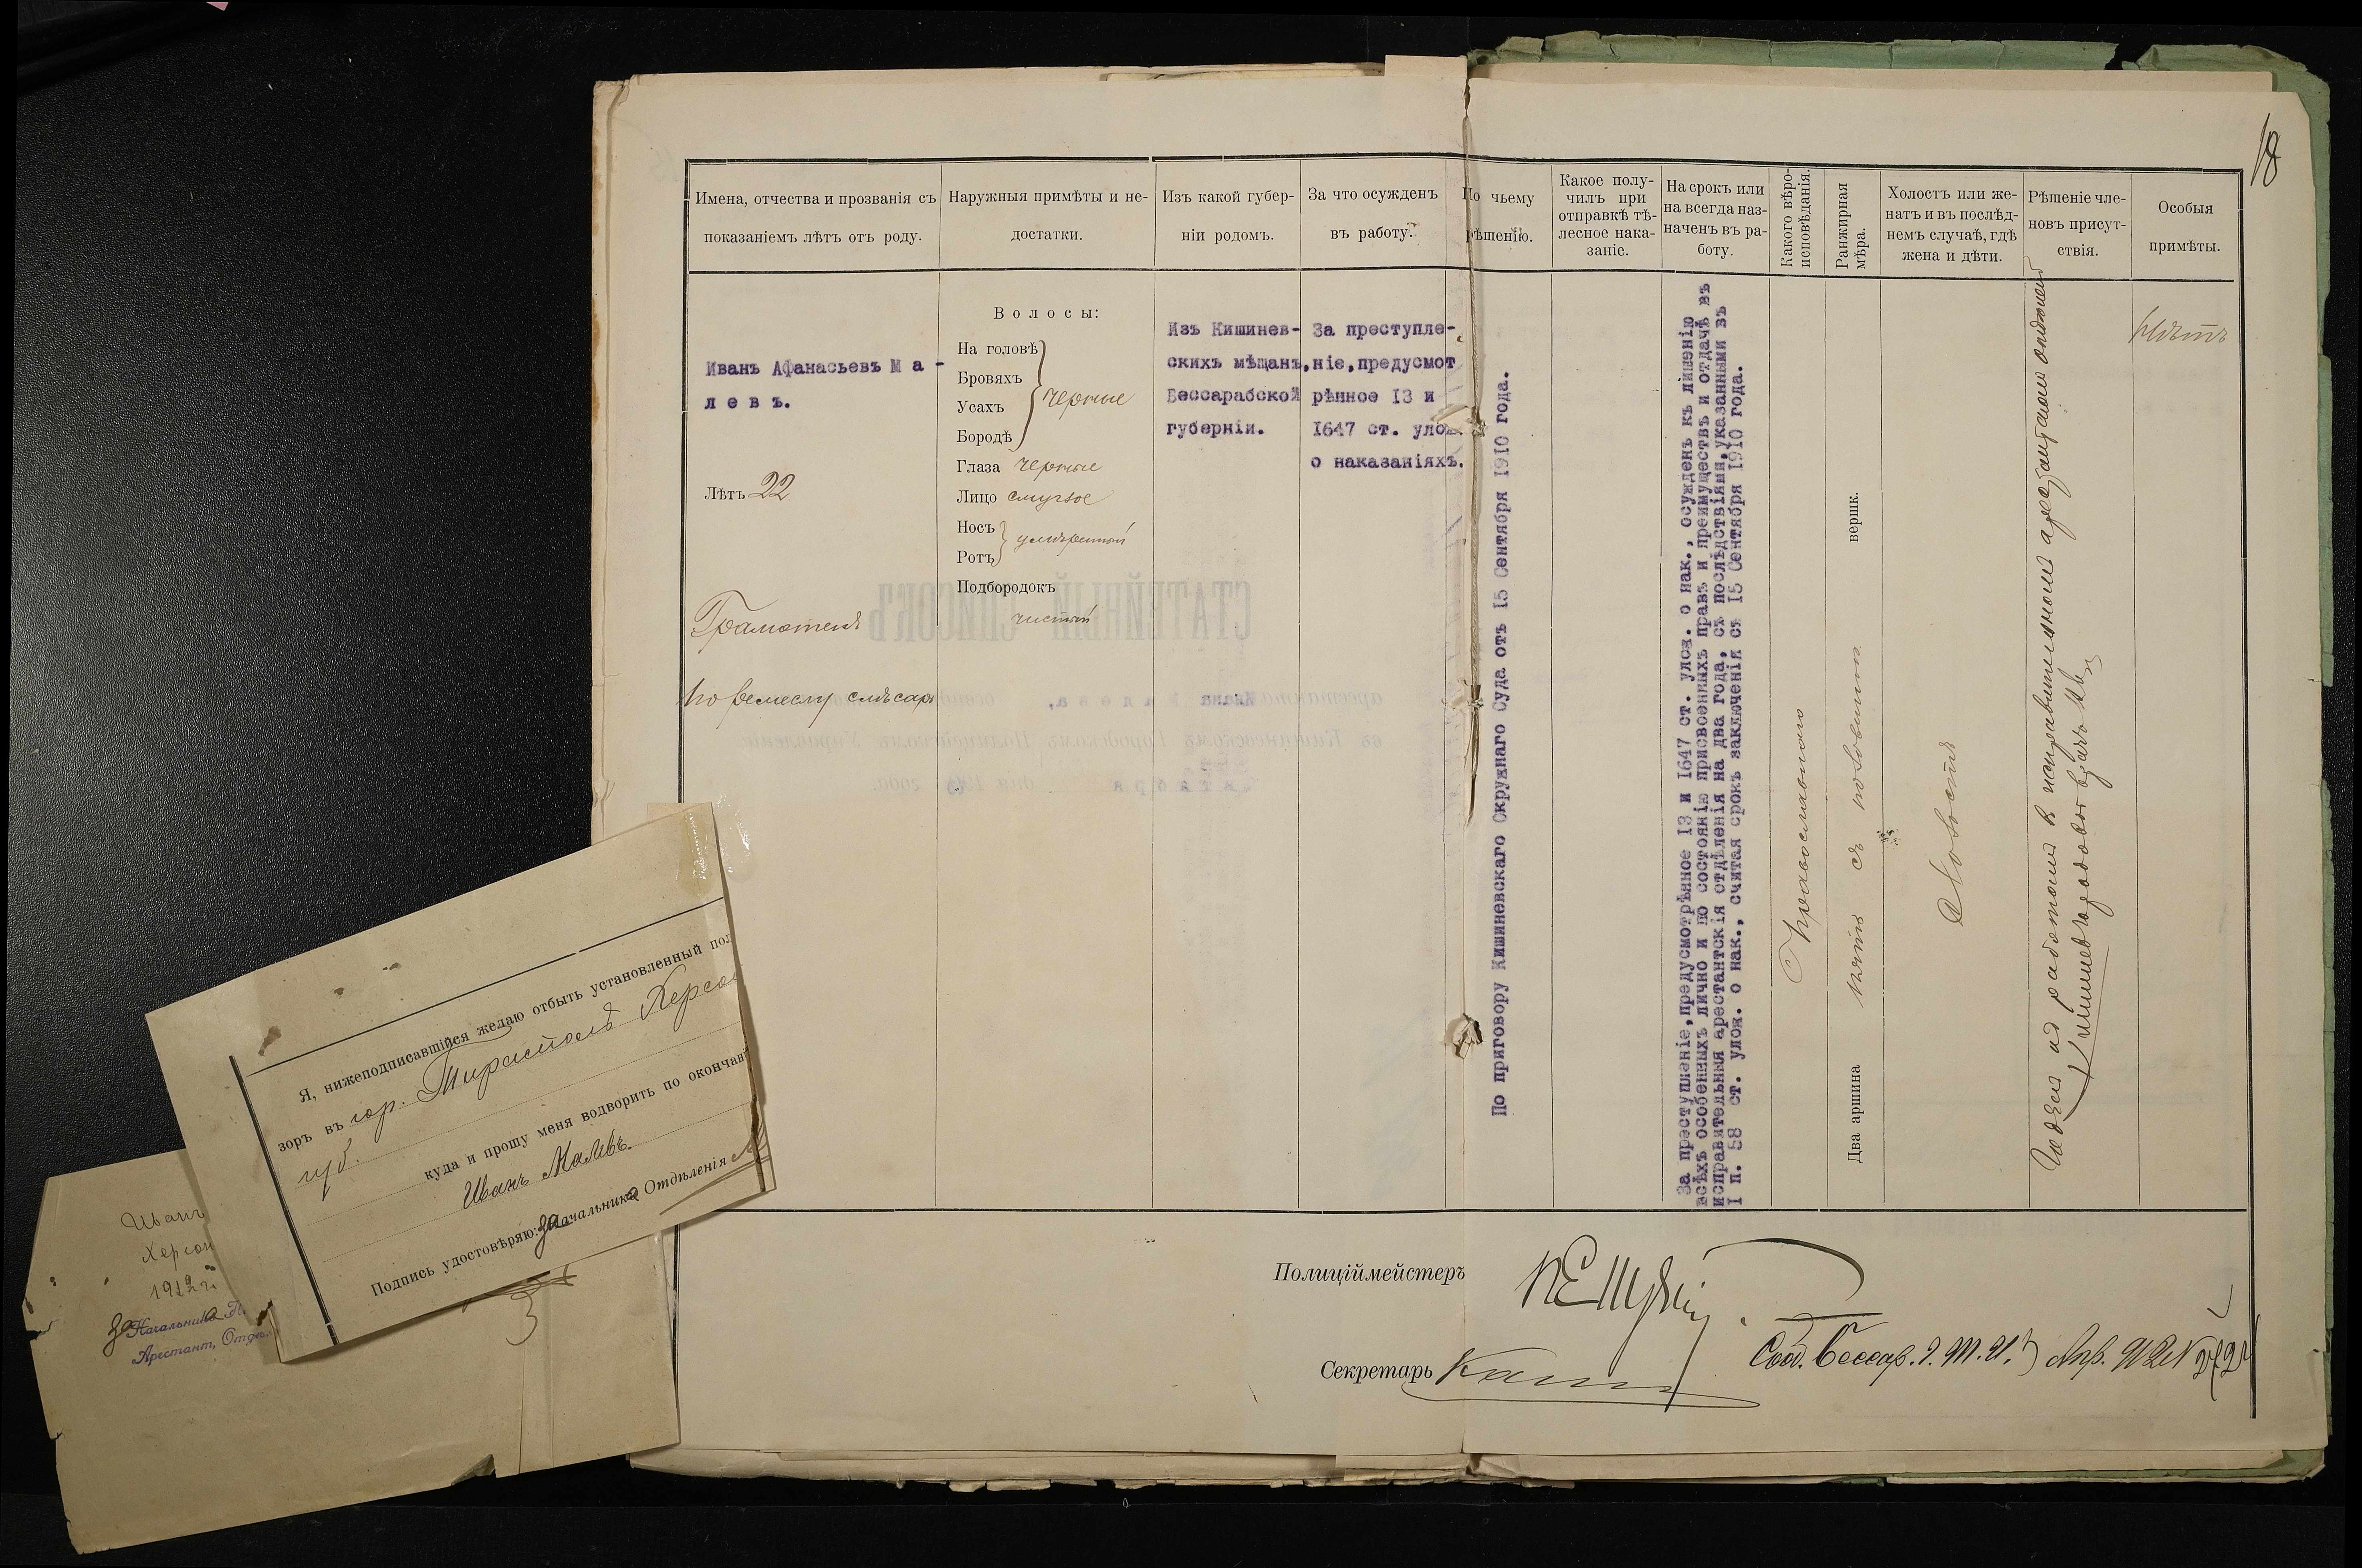 18
Имена, отчества и прозванія съ
показаніемъ лѣтъ отъ роду.
Наружныя примѣты и не-
достатки.
Изъ какой губер-
ніи родомъ.
За что осужденъ
въ работу.
По чьему
рѣшенію.
Какое полу-
чилъ при
отправкѣ тѣ-
лесное нака-
заніе.
На срокъ или
на всегда наз-
наченъ въ ра-
боту.
Какого вѣро-
исповѣданія.
Ранжирная
мѣра.
Холостъ или же-
натъ и въ послѣд-
немъ случаѣ, гдѣ
жена и дѣти.
Рѣшеніе чле-
новъ присут-
ствія.
Особыя
примѣты.
Иванъ Афанасьевъ М а -
л е в ъ.
Лѣтъ 22
Грамотенъ
по ремеслу слѣсарь
В о л о с ы:
На головѣ
Бровяхъ
Усахъ
Бородѣ
черные
Глаза черные
Лицо смуглое
Носъ
Ротъ
умѣренный
Подбородокъ
чистый
Изъ Кишинев-
скихъ мѣщанъ,
Бессарабской
губерніи.
За преступле-
ніе,предусмот
рѣнное 13 и
1647 ст. улож.
о наказаніяхъ.
По приговору Кишиневскаго Окружнаго Суда отъ 15 Сентября 1910 года.
За преступленіе,предусмотрѣнное 13 и 1647 ст. улож. о нак., осужденъ къ лишенію
всѣхъ особенныхъ лично и по состоянію присвоенныхъ правъ и преимуществъ и отдачѣ въ
исправительныя арестантскія отдѣленія на два года, съ послѣдствіями,указанными въ
I п. 58 ст. улож. о нак., считая срокъ заключенія съ 15 Сентября 1910 года.
Православнаго
Два аршина пять съ половиною вершк.
Холостъ
Годенъ къ работамъ в исправительномъ арестантскомъ отдѣленіи
врачъ
нѣтъ
СТАТЕЙНЫЙ СПИСОКЪ
Полиціймейстеръ
Секретарь
Я, нижеподписавшійся желаю отбыть установленный
зоръ въ гор. Тирасполѣ Херсо
губ.
куда и прошу меня водворить по окончан
Иванъ Малевъ.
Подпись удостовѣряю: за Начальника Отдѣленія
Иванъ
Херсон
1912 г.
за Начальника
Арестант. Отдѣл